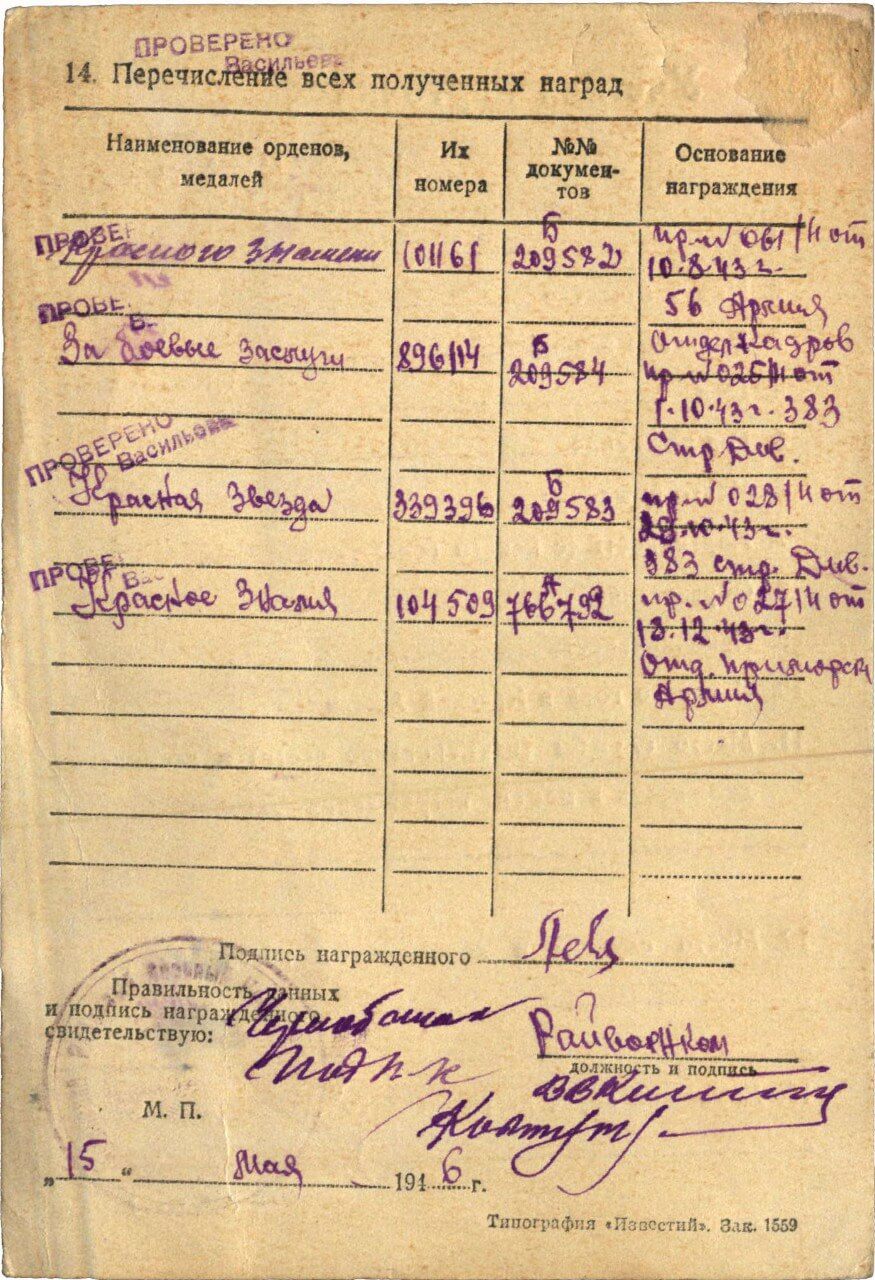 ПРОВЕРЕНО
Васильева
14. Перечисление всех полученных наград
Наименование орденов, медалей
Их номера
№№ документов
Основание награждения
ПРОВЕ
Красного Знамени 101161 Б 209582 пр. № 061/Н от
10.8.43 г.
56 Армия
ПРОВЕ
За боевые заслуги 896114 Б 209584 Отдел Кадров
пр № 025/Н от
1.10.43 г. 383
Стр Див.
ПРОВЕРЕНО
Васильева
Красная Звезда 339396 Б 209583 пр. № 028/Н от
28.10.43 г.
383 стр. Див.
ПРОВЕ
Красное Знамя 104509 А 766792 пр. № 027/Н от
13.12.43 г.
Отд. Приморск
Армия
Подпись награжденного
Правильность данных
и подпись награжденного
свидетельствую:
Райвоенком
должность и подпись
М. П.
„15“ Мая 1946 г.
Типография «Известий». Зак. 1559